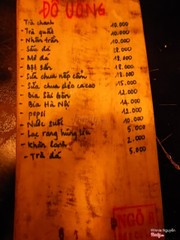 ĐỒ UỐNG
- Trà chanh 10.000
- Trà quất 10.000
- Nhân trần 10.000
- Sấu đá 18.000
- Mơ đá 18.000
- Sữa chua nếp cẩm 18.000
- Sữa chua dẻo cacao 15.000
- Bia Sài Gòn 12.000
- Bia Hà Nội 14.000
- Pepsi 12.000
- Nước suối 10.000
- Lạc rang húng lìu 5.000
- Khăn lạnh 2.000
- Trà đá 5.000
NGÕ
Foody